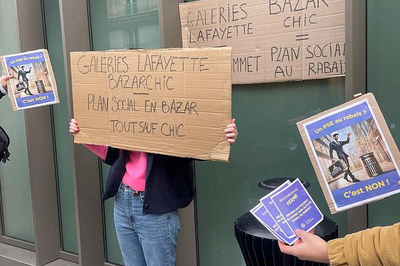 GALERIES BAZAR
LAFAYETTE CHIC
=
PLAN SOCIAL
AU RABAIS
GALERIES LAFAYETTE
BAZARCHIC
=
PLAN SOCIAL EN BAZAR
TOUT SAUF CHIC
Un PSE au rabais ?
C'est NON !
Un PSE au rabais ?
C'est NON !